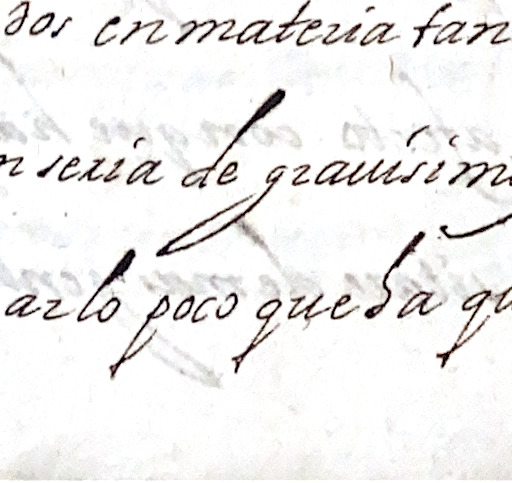 dos en materia tan
n seria de grauisim
arlo poco queda qu